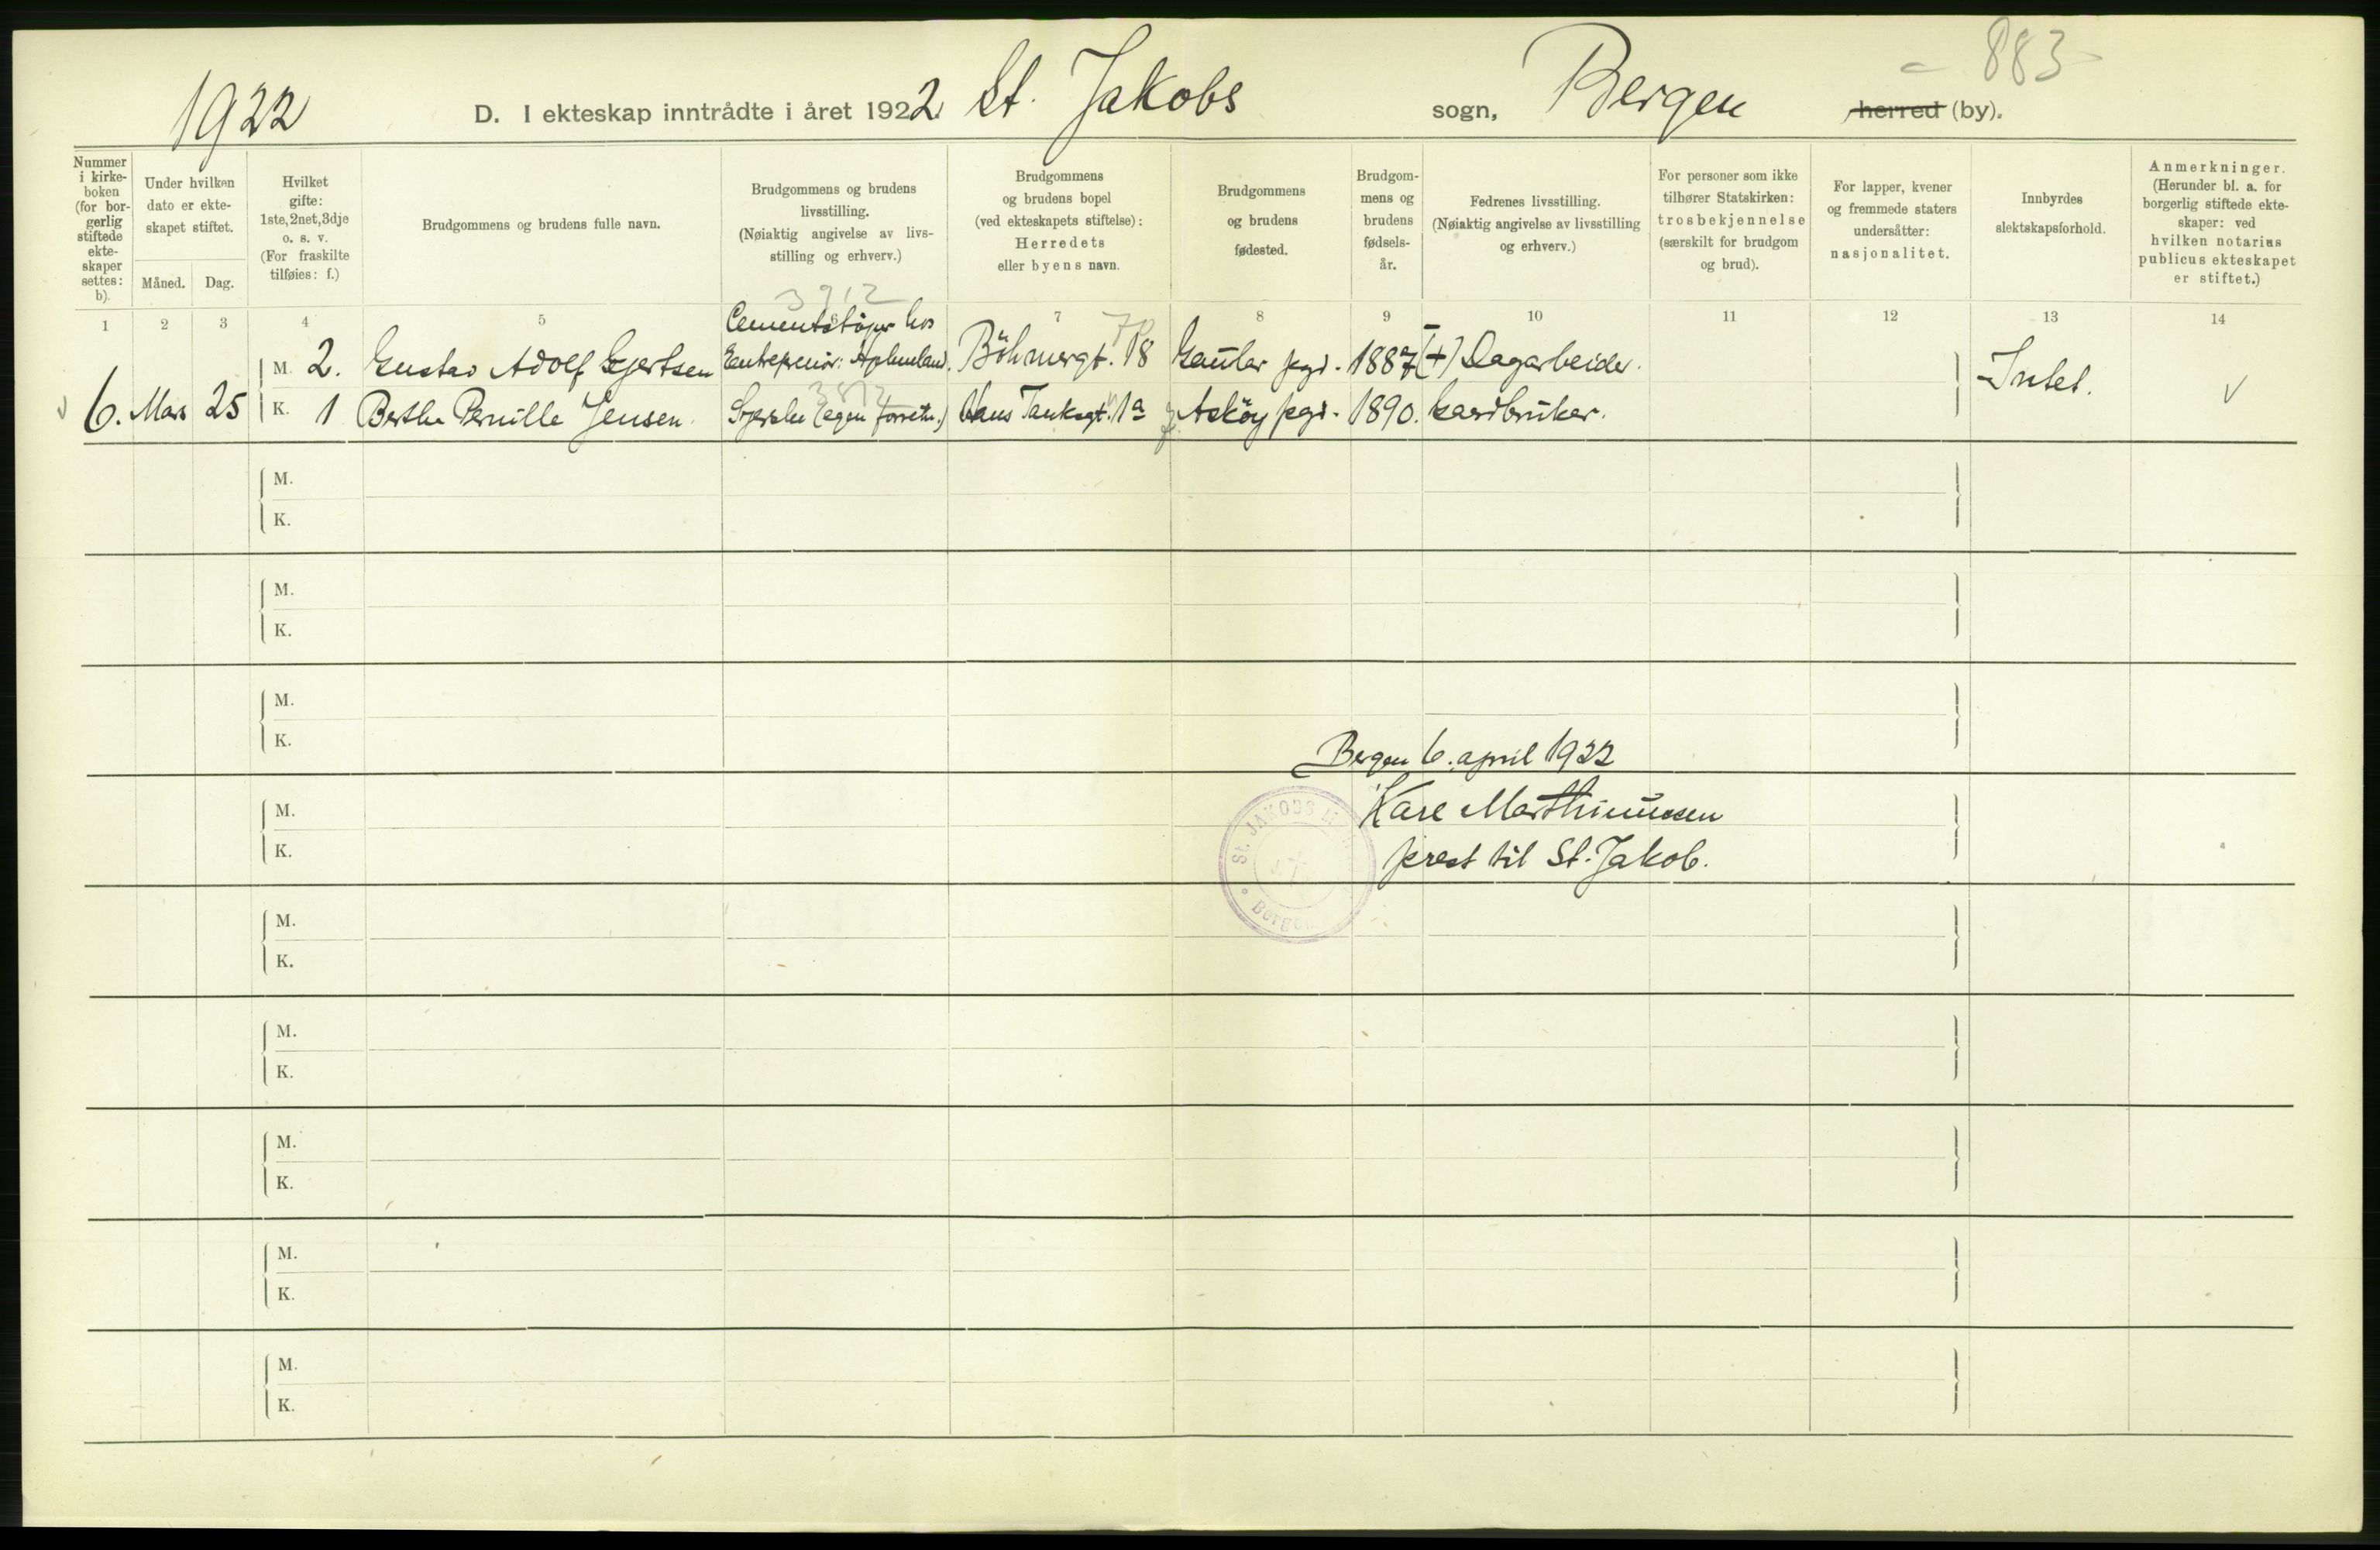 883
1922 D. I ekteskap inntrådte i året 1922 St. Jakobs sogn, Bergen herred (by).
Nummer i kirkeboken (for borgerlig stiftede ekteskaper settes: b).
Under hvilken dato er ekteskapet stiftet.
Måned. Dag.
Hvilket gifte: 1ste, 2net, 3dje o. s. v. (For fraskilte tilføies: f.)
Brudgommens og brudens fulle navn.
Brudgommens og brudens livsstilling. (Nøiaktig angivelse av livsstilling og erhverv.)
Brudgommens og brudens bopel (ved ekteskapets stiftelse): Herredets eller byens navn.
Brudgommens og brudens fødested.
Brudgommens og brudens fødselsår.
Fedrenes livsstilling. (Nøiaktig angivelse av livsstilling og erhverv.)
For personer som ikke tilhører Statskirken: trosbekjennelse (særskilt for brudgom og brud).
For lapper, kvener og fremmede staters undersåtter: nasjonalitet.
Innbyrdes slektskapsforhold.
Anmerkninger. (Herunder bl. a. for borgerlig stiftede ekteskaper: ved hvilken notarius publicus ekteskapet er stiftet.)
3912
1 2 3 4 5 6 7 8 9 10 11 12 13 14
Cementstöper hos
M. 2. Gustav Adolf Gjertsen Entreprenör: Böhmergt. 18 Gaular pgd. 1887 (+) Dagarbeider. Intet.
6. Mars 25 K. 1 Berthe Pernille Jensen. Syerske (egen forretn.) Hans Tanksgt. 1a Asköy pgd. 1890. Gardbruker.
M.
K.
M.
K.
M.
K.
Bergen 6. april 1922
M.
Kare Marthinussen
K.
prest til St. Jakob.
St. JAKOBS
Bergen
M.
K.
M.
K.
M.
K.
M.
K.
M.
K.